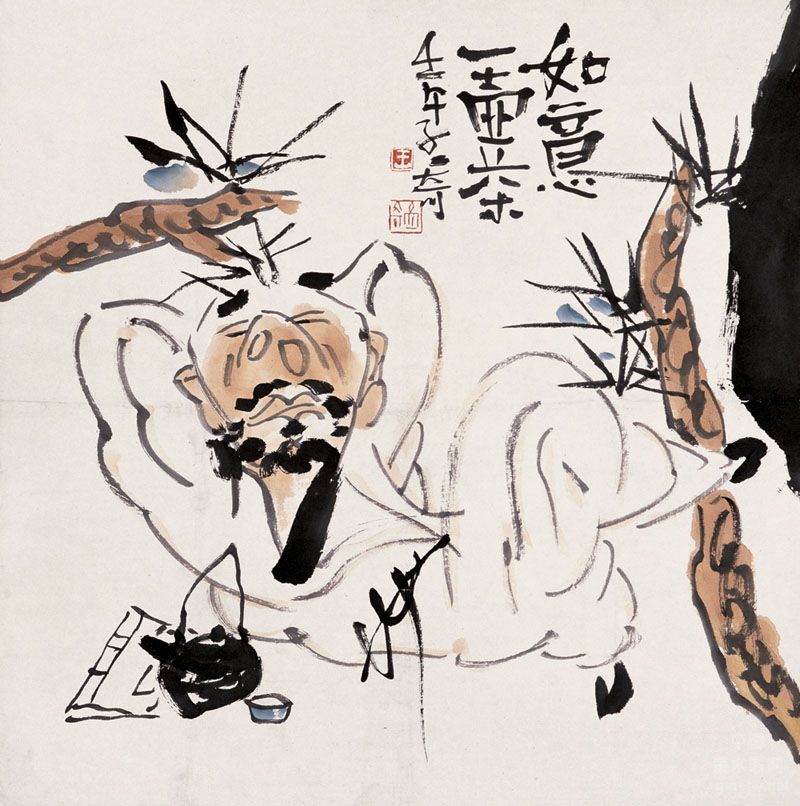 如意
一壷茶
壬午子奇
王